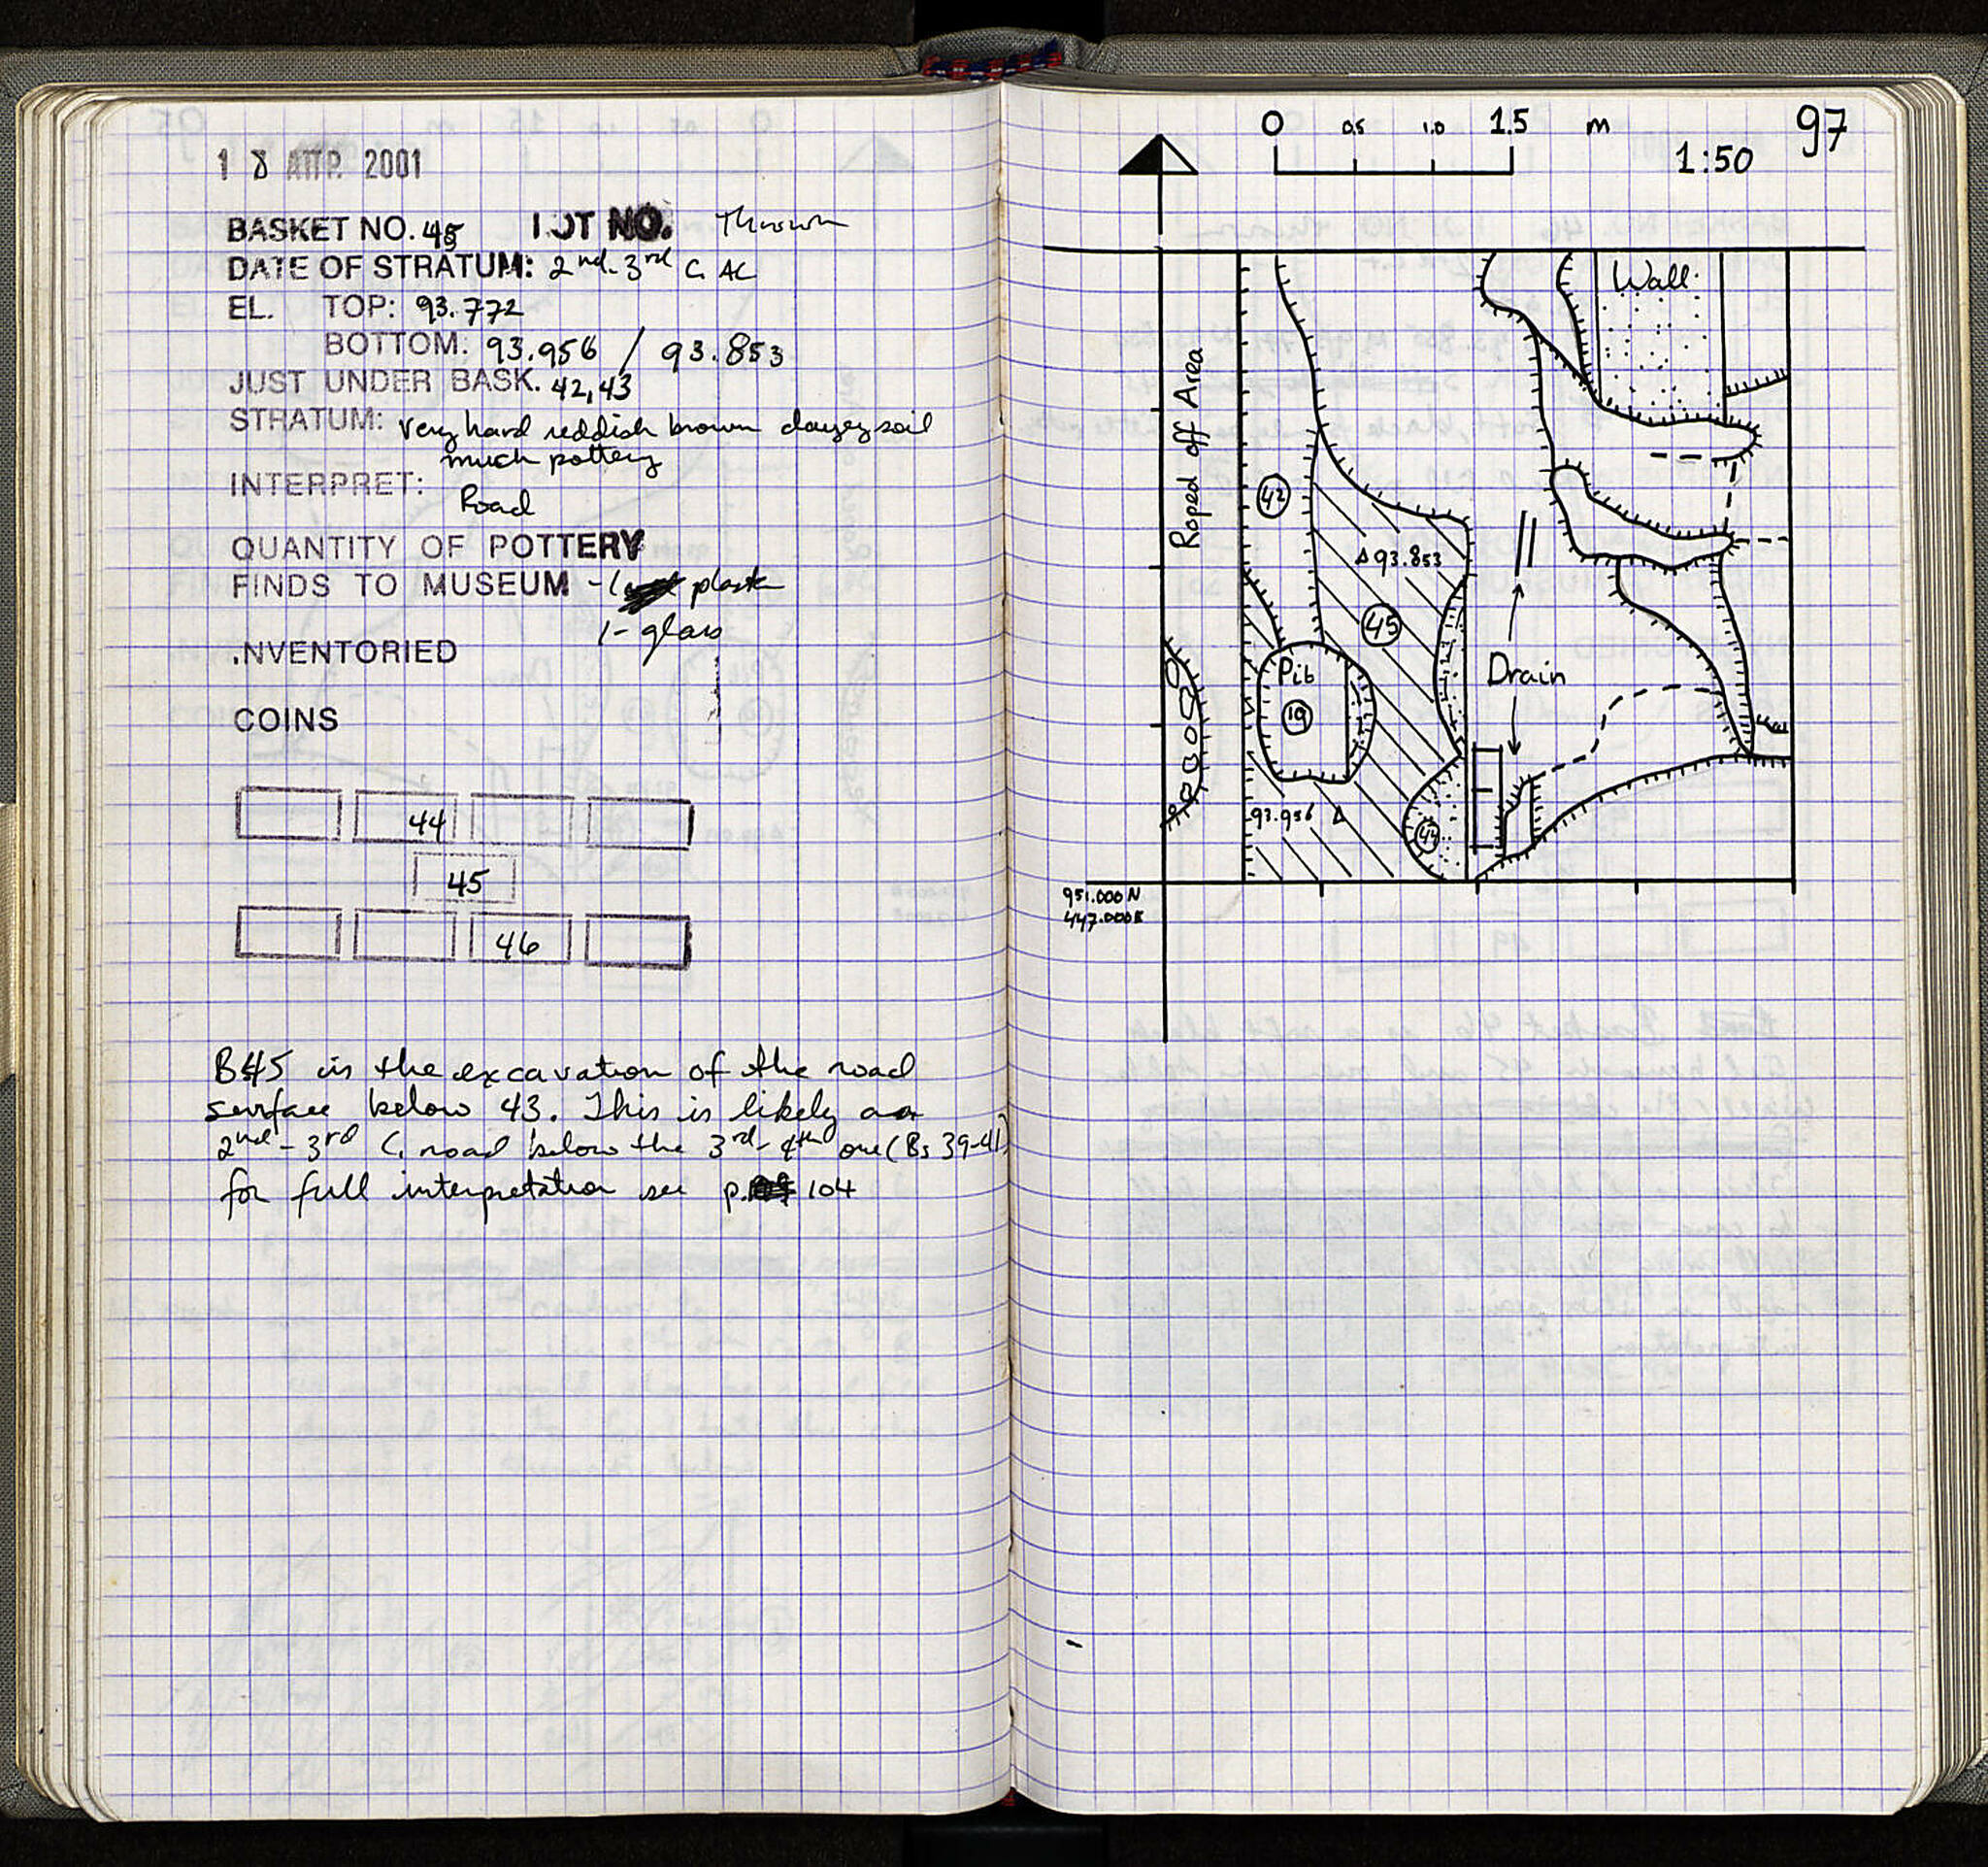 18 ΑΠΡ. 2001
BASKET NO. 45 LOT NO. Thrown
DATE OF STRATUM: 2nd-3rd C. AC
EL. TOP: 93.772
BOTTOM: 93.956 / 93.853
JUST UNDER BASK. 42,43
STRATUM: Very hard reddish brown clayey soil
much pottery
INTERPRET:
Road
QUANTITY OF POTTERY
FINDS TO MUSEUM -1 plaster
1- glass
INVENTORIED
COINS
44
45
46
B45 is the excavation of the road
surface below 43. This is likely a
2nd-3rd C. road below the 3rd-4th one (Bs 39-41)
for full interpretation see p. 104
97
0 0.5 1.0 1.5 m
1:50
Wall
Roped off Area
42
93.853
45
Pit
19
Drain
93.956
44
951.000N
447.000E